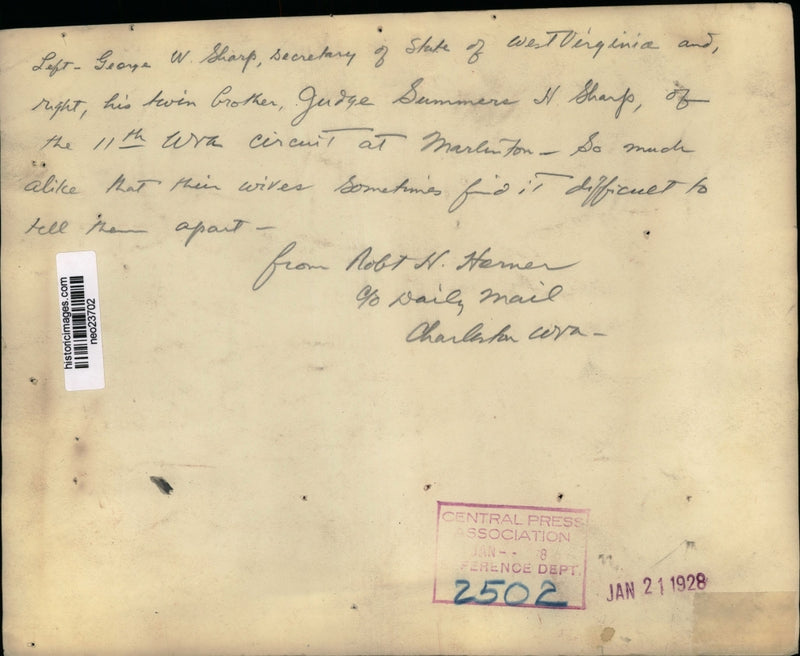 Left - George W. Sharp, Secretary of State of West Virginia and,
right, his twin brother, Judge Summers H. Sharp, of
the 11th WVa circuit at Marlinton - So much
alike that their wives sometimes find it difficult to
tell them apart -
from Robt H. Horner
c/o Daily Mail
Charleston WVa -
historicimages.com
neo23702
CENTRAL PRESS
ASSOCIATION
JAN - 8
FERENCE DEPT.
2502
JAN 21 1928